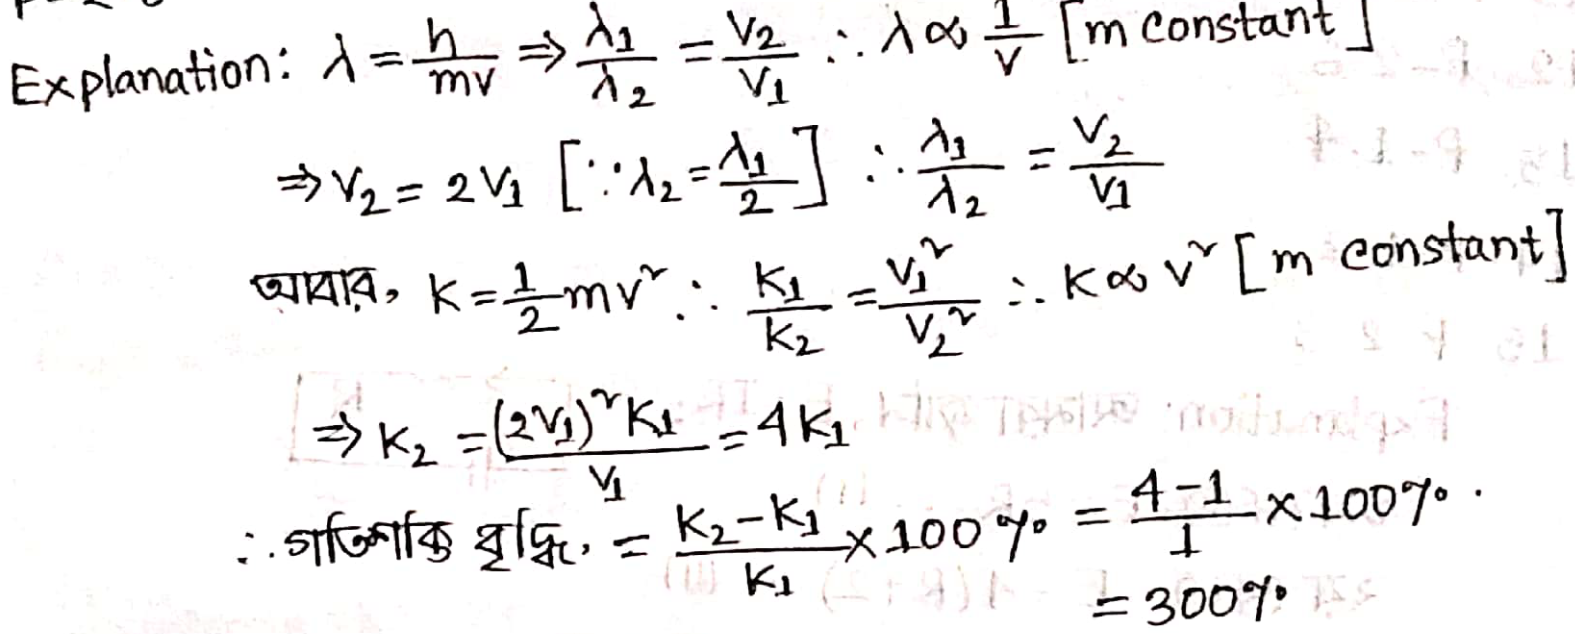 Explanation: λ = h/mv ⇒ λ₁/λ₂ = V₂/V₁ ∴ λ ∝ 1/v [m constant]
⇒ V₂ = 2V₁ [∵ λ₂ = λ₁/2] ∴ λ₁/λ₂ = V₂/V₁
আবার, K = 1/2 mv² ∴ K₁/K₂ = V₁²/V₂² ∴ K ∝ v² [m constant]
⇒ K₂ = (2V₁)² K₁/V₁ = 4K₁
∴ গতিশক্তি বৃদ্ধি, = K₂-K₁/K₁ × 100% = 4-1/1 × 100%.
= 300%